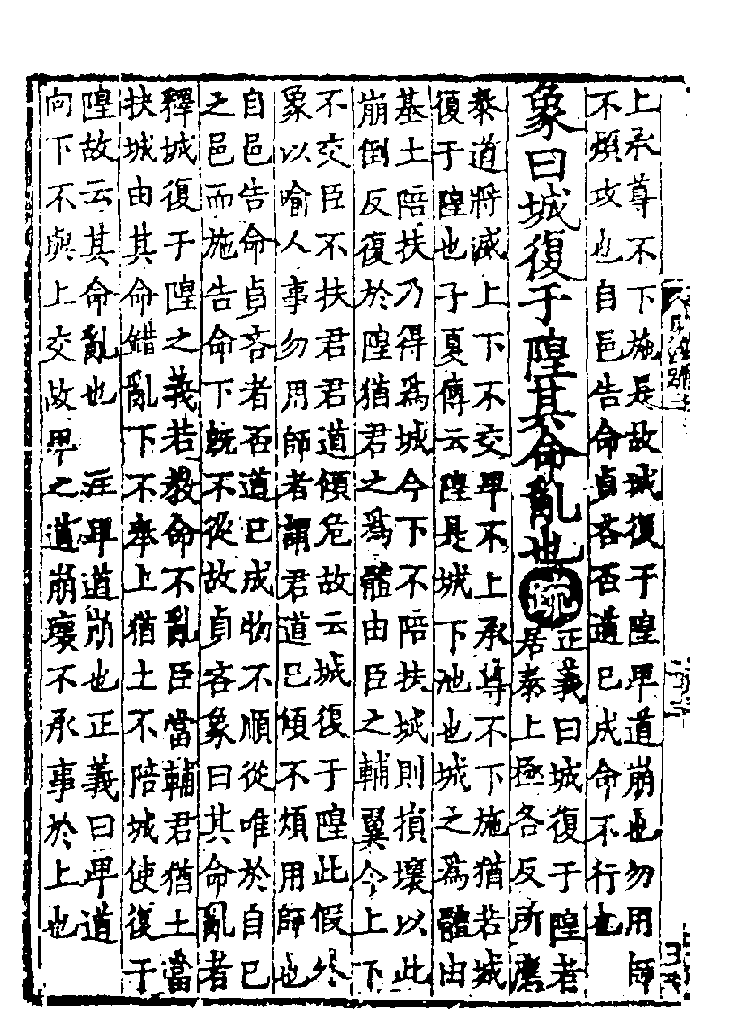 上承尊不下施是故城復于隍卑道崩也勿用師
不煩攻也自邑告命貞吝否道已成命不行也
象曰城復于隍其命亂也疏
正義曰城復于隍者
居泰上極各反所應
泰道將滅上下不交卑不上承尊不下施猶若城
復于隍也子夏傳云隍是城下池也城之為體由
基土陪扶乃得為城今下不陪扶城則損壞以此
崩倒反復於隍猶君之為體由臣之輔翼今上下
不交臣不扶君君道傾危故云城復于隍此假外
象以喻人事勿用師者謂君道已傾不煩用師也
自邑告命貞吝者否道已成物不順從唯於自已
之邑而施告命下既不從故貞吝象曰其命亂者
釋城復于隍之義若教命不亂臣當輔君猶土當
扶城由其命錯亂下不奉上猶土不陪城使復于
隍故云其命亂也 注卑道崩也正義曰卑道
向下不與上交故卑之道崩壞不承事於上也